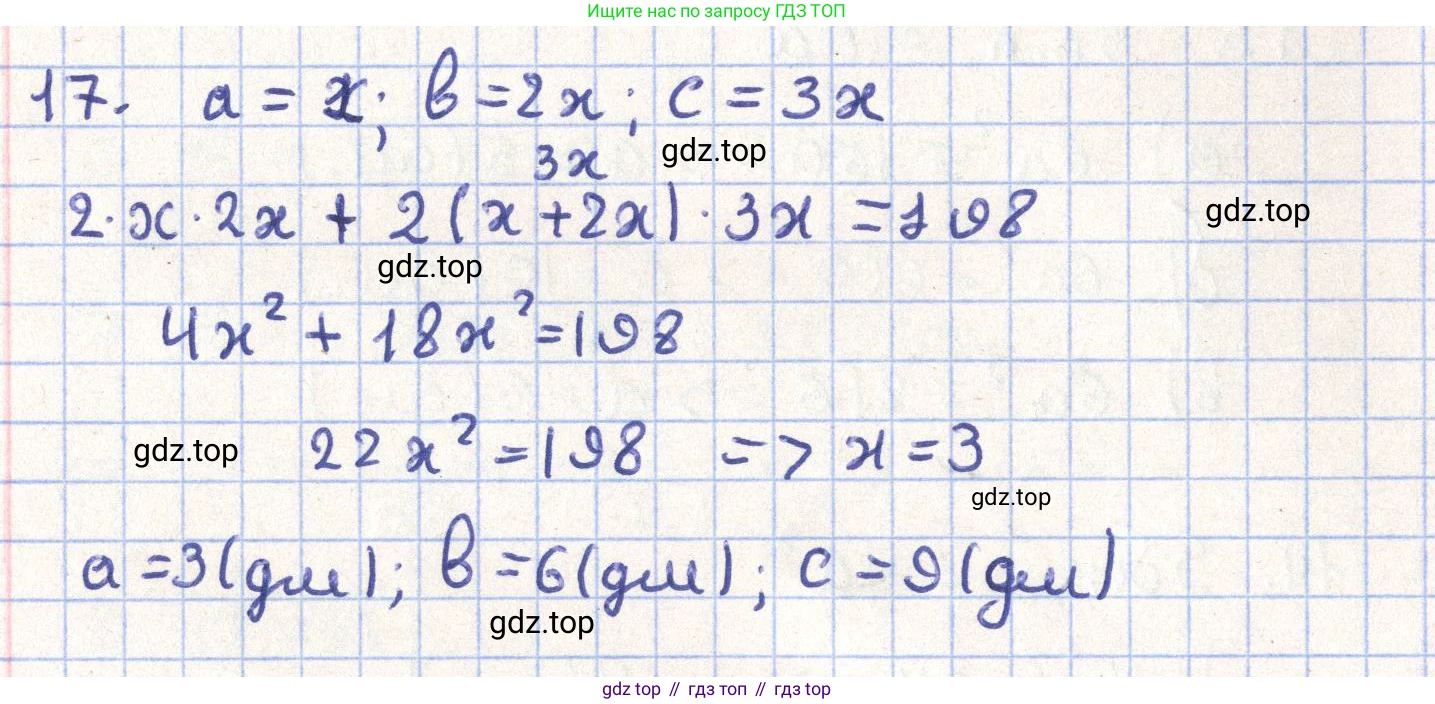 Ищите нас по запросу ГДЗ ТОП
17. a = x; b = 2x; c = 3x
3x gdz.top
2·x·2x + 2(x+2x)·3x = 198 gdz.top
gdz.top
4x² + 18x² = 198
gdz.top 22x² = 198 => x = 3
gdz.top
a = 3(дм); b = 6(дм); c = 9(дм)
gdz.top
gdz top // гдз топ // gdz top